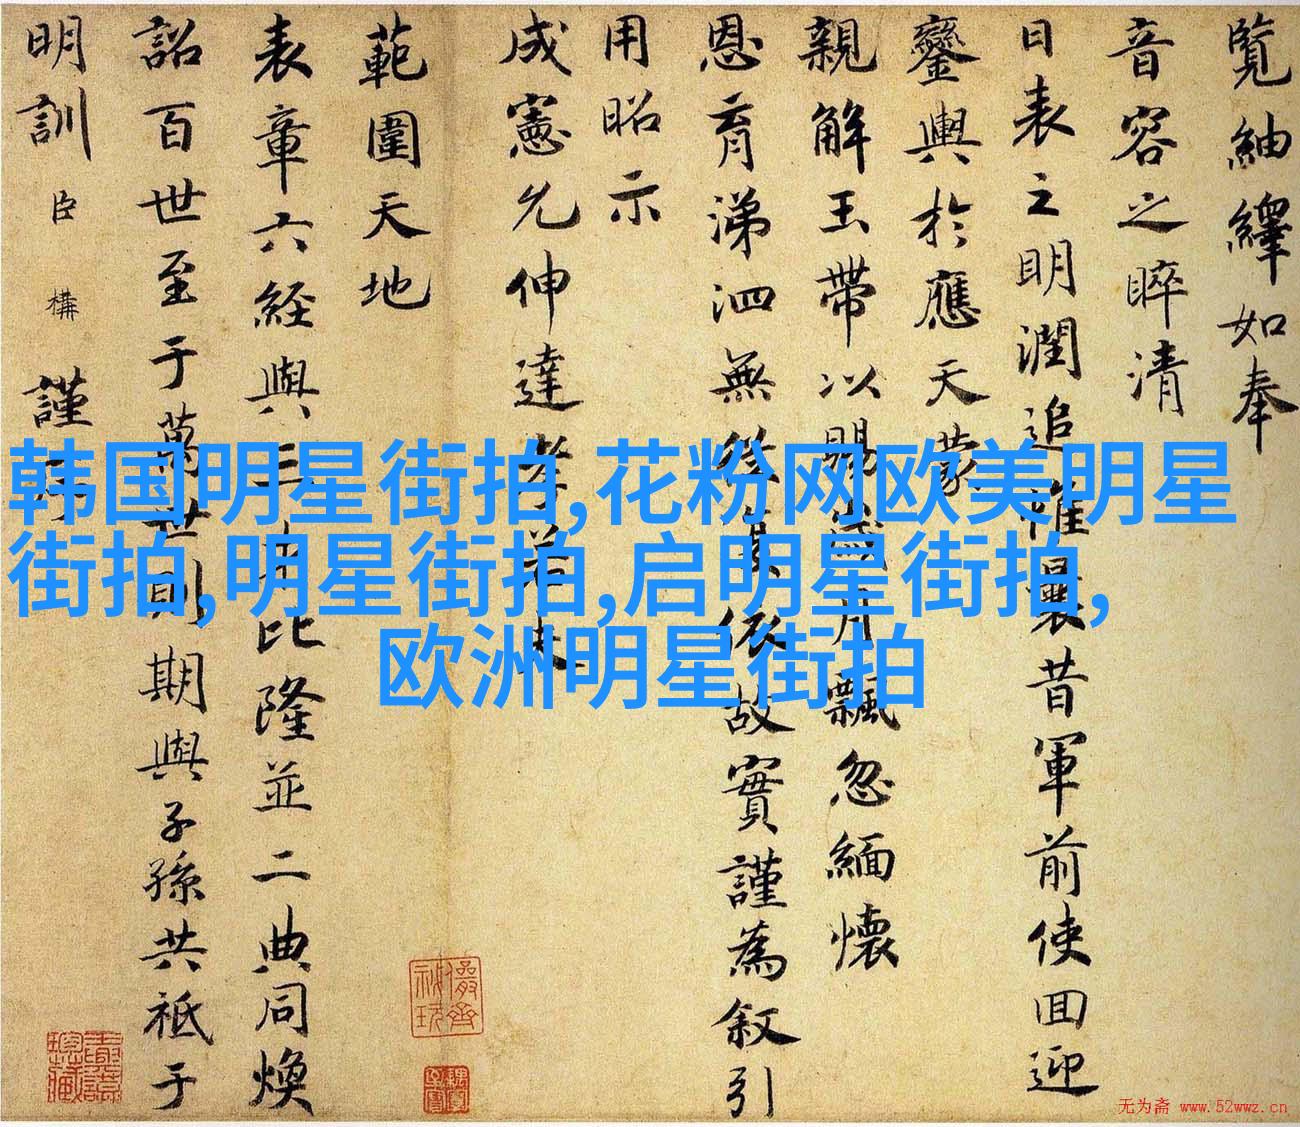 覽紬繹如奉
音容之晬清
日表之明潤追惟曩昔軍前使回迎
鑾輿於應天蒙
親解玉帶以賜歲月飄忽緬懷
恩育涕泗無從依故實謹為叙引
用昭示
成憲允伸達孝若夫
範圍天地
表章六经與三比隆並二典同煥
詔百世至于萬世則期與子孫共祗于
明訓臣構謹
韩国明星街拍,花粉网欧美明星
街拍,明星街拍,启明星街拍,
欧洲明星街拍
无为斋 www.52wwz.cn